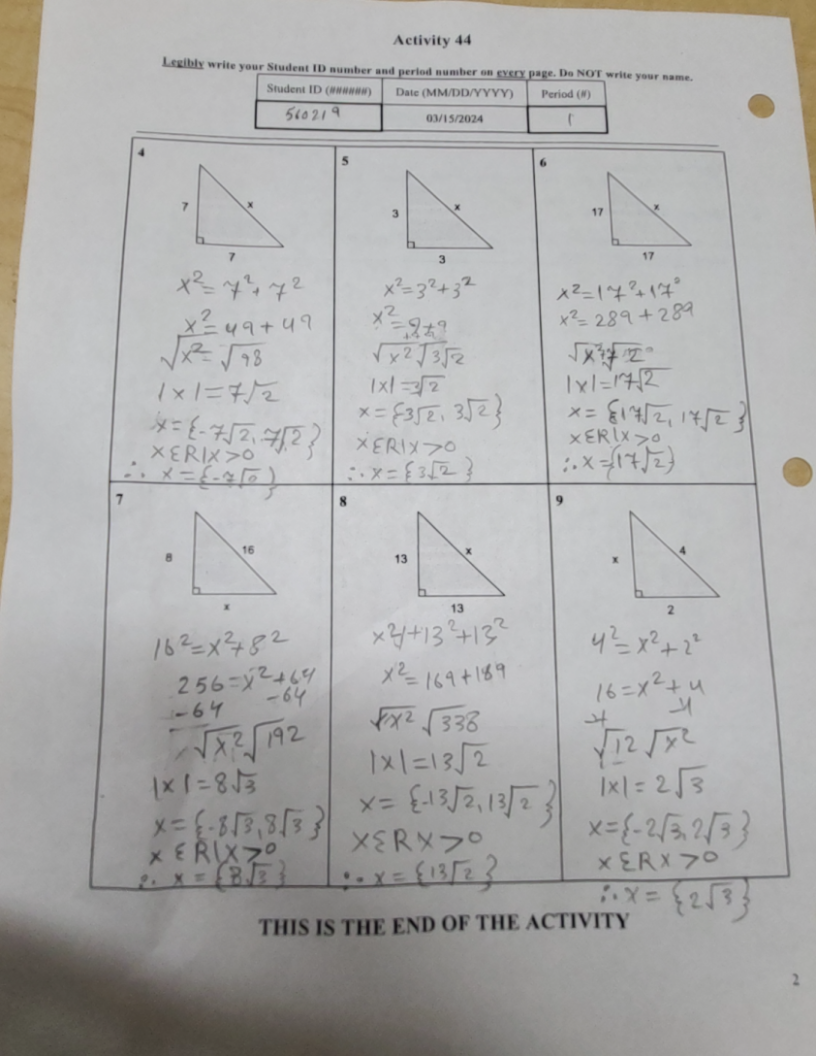 Activity 44
Legibly write your Student ID number and period number on every page. Do NOT write your name.
Student ID (######) Date (MM/DD/YYYY) Period (#)
560219 03/15/2024 1
4
7
x
7
x²=7²+7²
x²=49+49
√x²=√98
|x|=7√2
x={-7√2,7√2}
xεR|x>0
∴ x={-7√
5
3
x
3
x²=3²+3²
x²=9+9
√x²√3√2
|x|=3√2
x={3√2, 3√2}
xεR|x>0
∴x={3√2}
6
17
x
17
x²=17²+17²
x²=289+289
|x|=17√2
x={17√2, 17√2}
xεR|x>0
∴x={17√2}
7
8
16
x
16²=x²+8²
256=x²+64
-64 -64
√x²√192
|x|=8√3
x={-8√3,8√3}
xεR|x>0
∴ x={8√3}
8
13
x
13
+13²+13²
x²=169+189
√x²√338
|x|=13√2
x={-13√2,13√2}
xεRx>0
∴x={13√2}
9
x
4
2
4²=x²+2²
16=x²+4
-4 -4
√12√x²
|x|=2√3
x={-2√3,2√3}
xεRx>0
∴x={2√3}
THIS IS THE END OF THE ACTIVITY
2